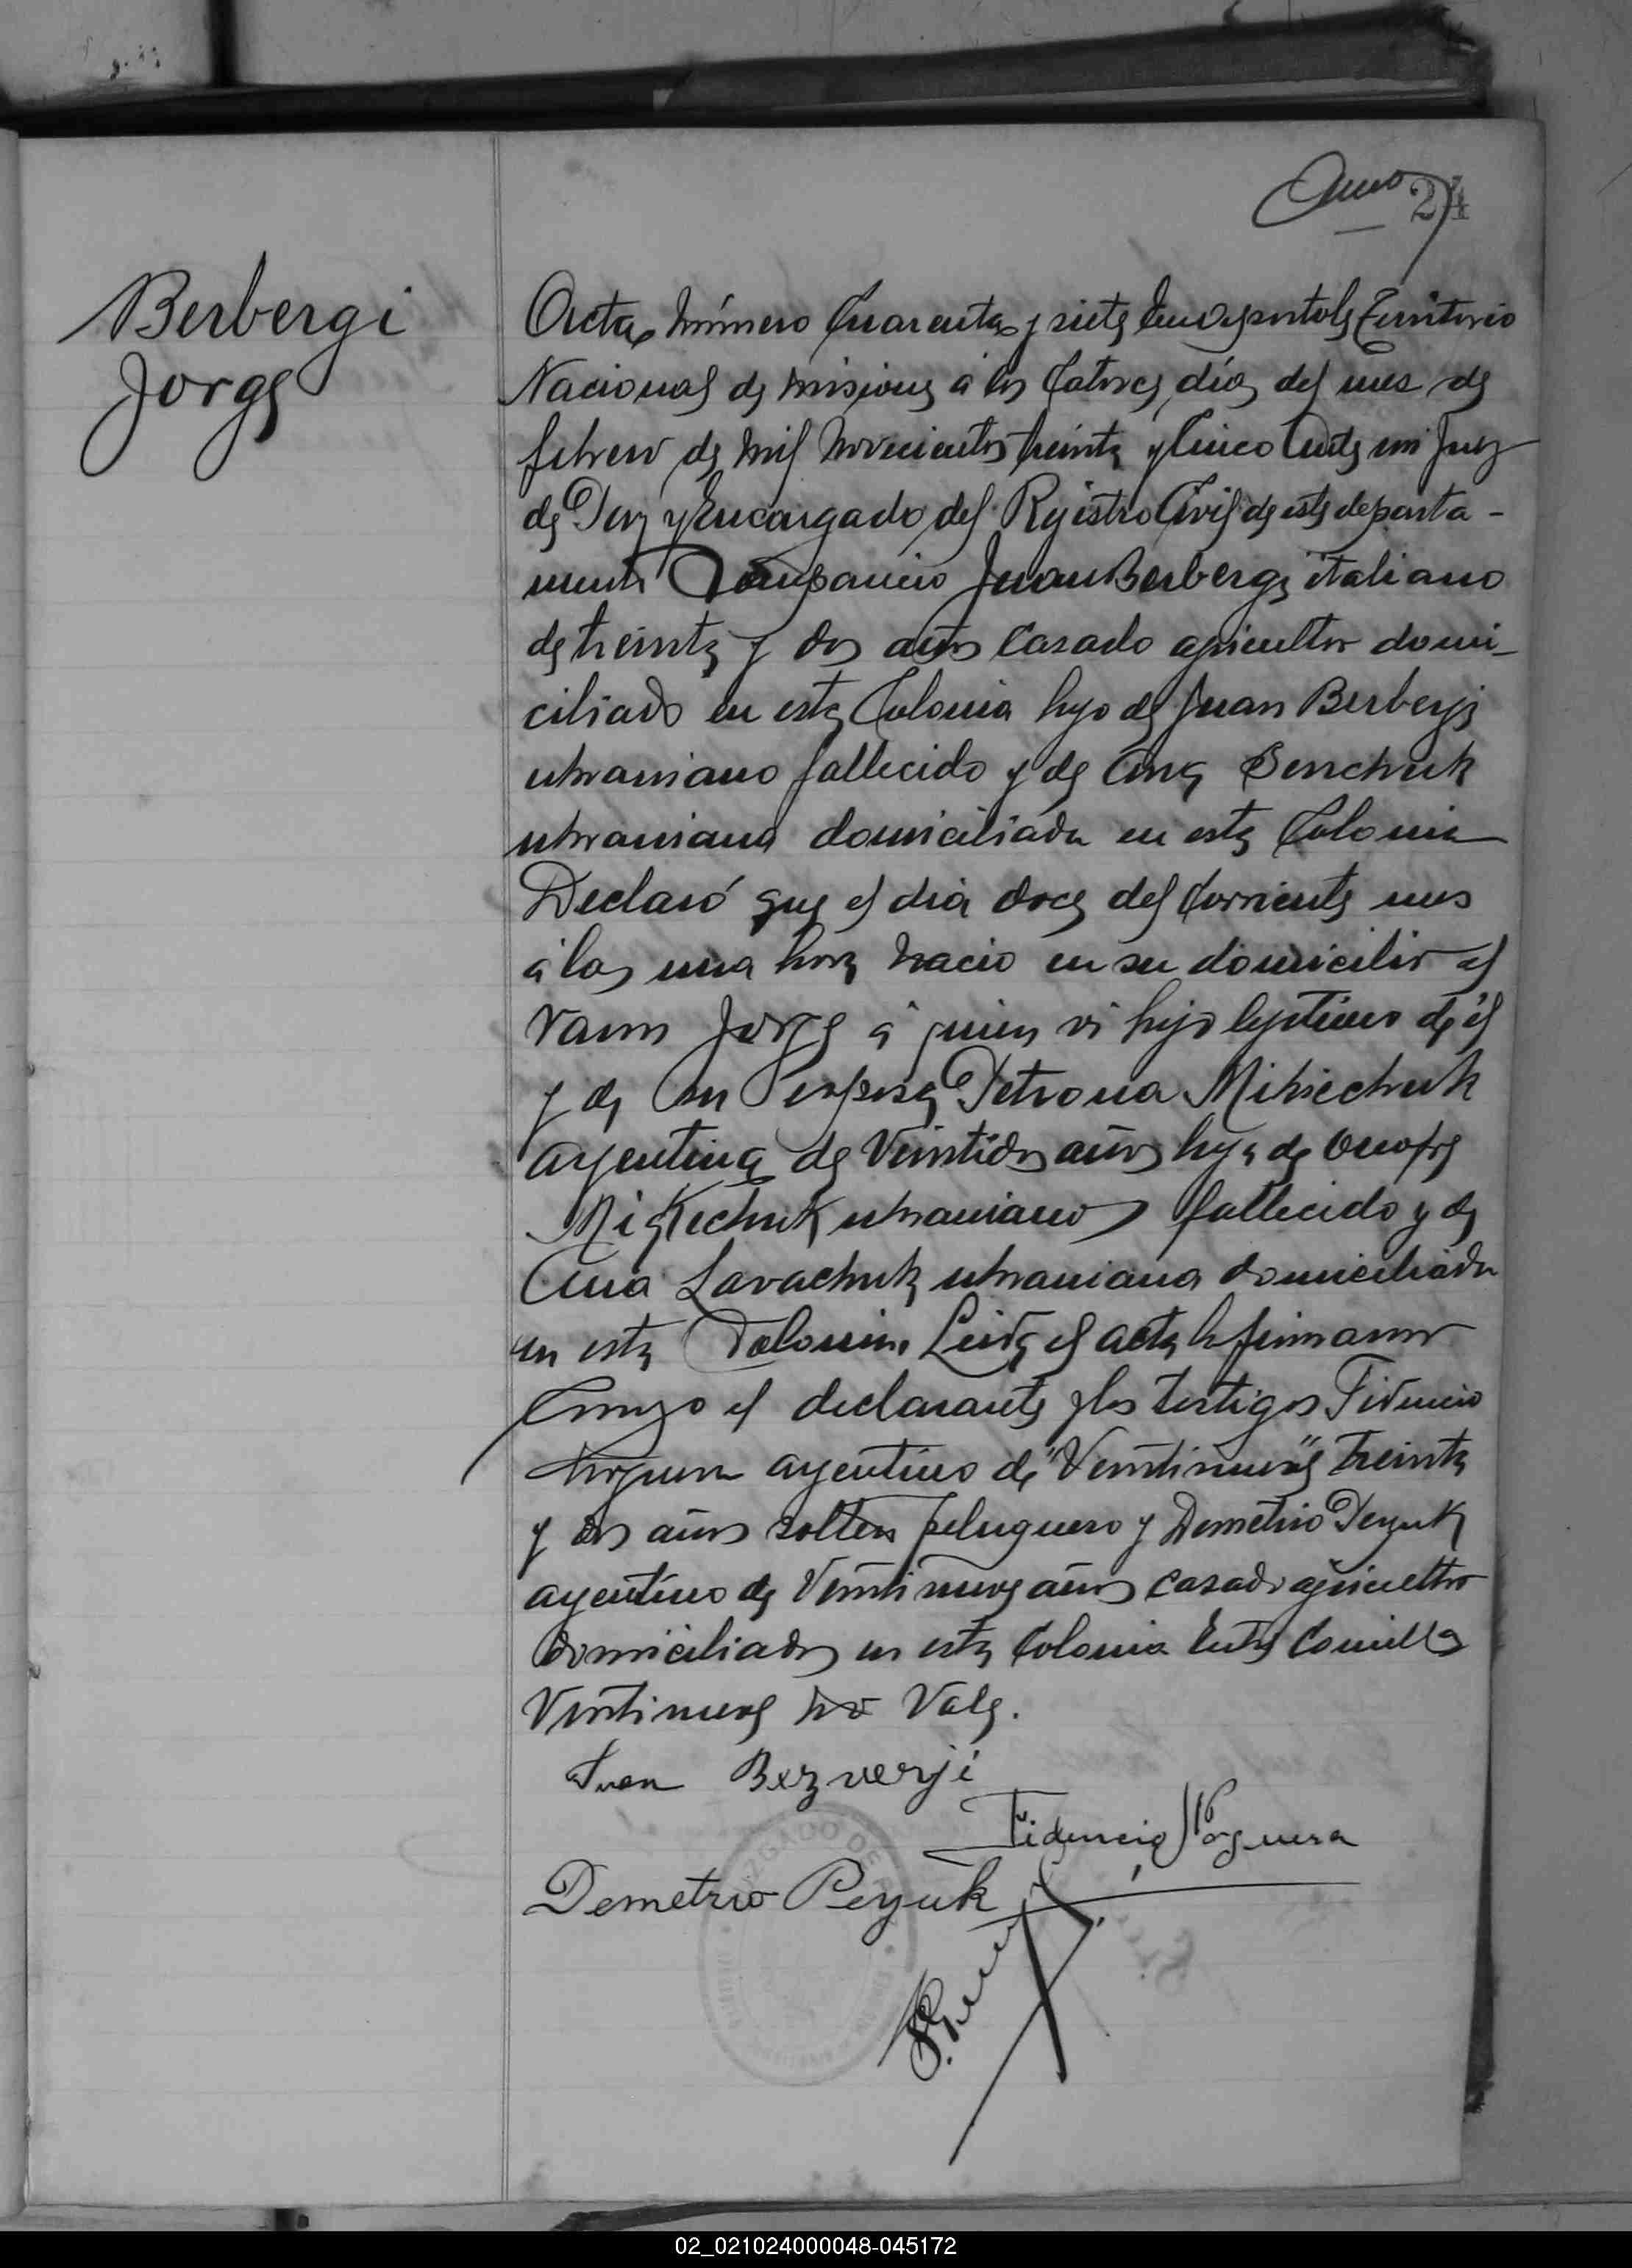 24
Berbergi
Jorge
Acta Número Cuarenta y siete En Apostoles Territorio
Nacional de Misiones á los Catorce dias del mes de
febrero de Mil Novecientos treinta y Cinco Ante mi Juez
de Paz y Encargado del Registro Civil de este departa-
mento Compareció Juan Berbergi italiano
de treinta y dos años Casado agricultor domi-
ciliado en esta Colonia hijo de Juan Berbergi
ukraniano fallecido y de Ana Senchuk
ukraniana domiciliada en esta Colonia
Declaró que el dia doce del Corriente mes
á las una hora Nacio en su domicilio el
varon Jorge á quien vi hijo legitimo de él
y de su esposa Petrona Mikiechuk
argentina de Veintidos años hija de Onofre
Mikiechuk ukraniano fallecido y de
Ana Lavachuk ukraniana domiciliada
en esta Colonia. Leida el acta la firmaron
Conmigo el declarante y los testigos Fidencio
Noguera argentino de "Veintinueve" treinta
y dos años soltero peluquero y Demetrio Peyuk
argentino de Veintinueve años casado agricultor
domiciliados en esta Colonia Entre Comillas
Veintinueve No Vale.
Juan Bezverji
Fidencio Noguera
Demetrio Peyuk
JUZGADO DE
02_021024000048-045172